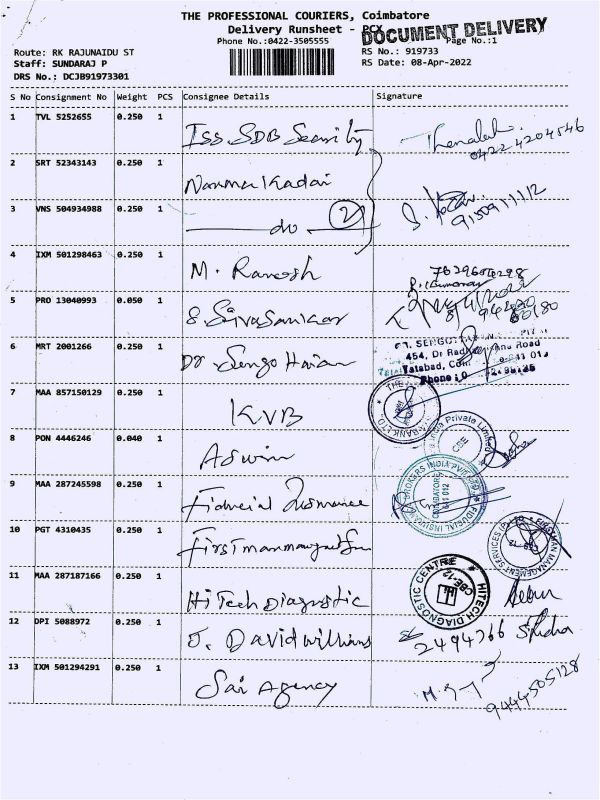 THE PROFESSIONAL COURIERS, Coimbatore
Delivery Runsheet - PCX
DOCUMENT DELIVERY
Phone No.:0422-3505555
Page No.:1
Route: RK RAJUNAIDU ST
RS No.: 919733
Staff: SUNDARAJ P
RS Date: 08-Apr-2022
DRS No.: DCJB91973301
S No Consignment No Weight PCS Consignee Details Signature
1 TVL 5252655 0.250 1 ISS SDB Security
0422 4204546
2 SRT 52343143 0.250 1 Nanma Kadai
3 VNS 504934988 0.250 1 do 2
9150911112
4 IXM 501298463 0.250 1 M. Ramesh
5 PRO 13040993 0.050 1 S Sivasankar
6 MRT 2001266 0.250 1 Dr
454, Dr Road
Tatabad,
Phone :
7 MAA 857150129 0.250 1 KVB
8 PON 4446246 0.040 1 Aswin
Private Limited
CBE
9 MAA 287245598 0.250 1 Fiducial Insurance
BROKERS INDIA PVT
FIDUCIAL
COIMBATORE
641 012
10 PGT 4310435 0.250 1
MANAGEMENT SERVICES
11 MAA 287187166 0.250 1 HiTech Diagnostic
HITECH DIAGNOSTIC CENTRE
CBE-12
12 DPI 5088972 0.250 1 J. David Williams
2494766
13 IXM 501294291 0.250 1 Sai Agency
9444505128